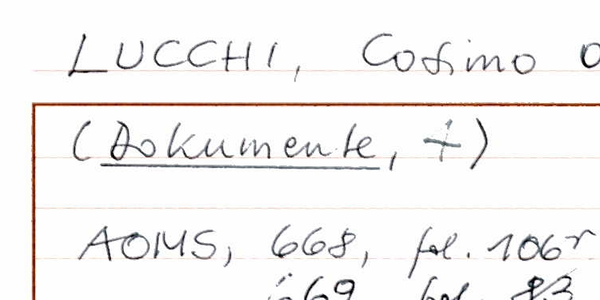 LUCCHI, Cosimo
(Dokumente, †)
AOMS, 668, fol. 106r
669, fol. 83